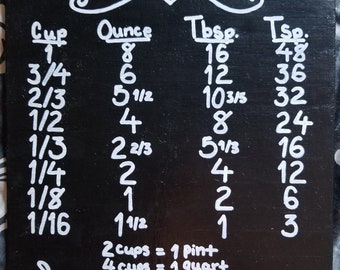 Cup Ounce Tbsp. Tsp.
1 8 16 48
3/4 6 12 36
2/3 5 1/2 10 3/5 32
1/2 4 8 24
1/3 2 2/3 5 1/3 16
1/4 2 4 12
1/8 1 2 6
1/16 1 1/2 1 3
2 cups = 1 pint
4 cups = 1 quart